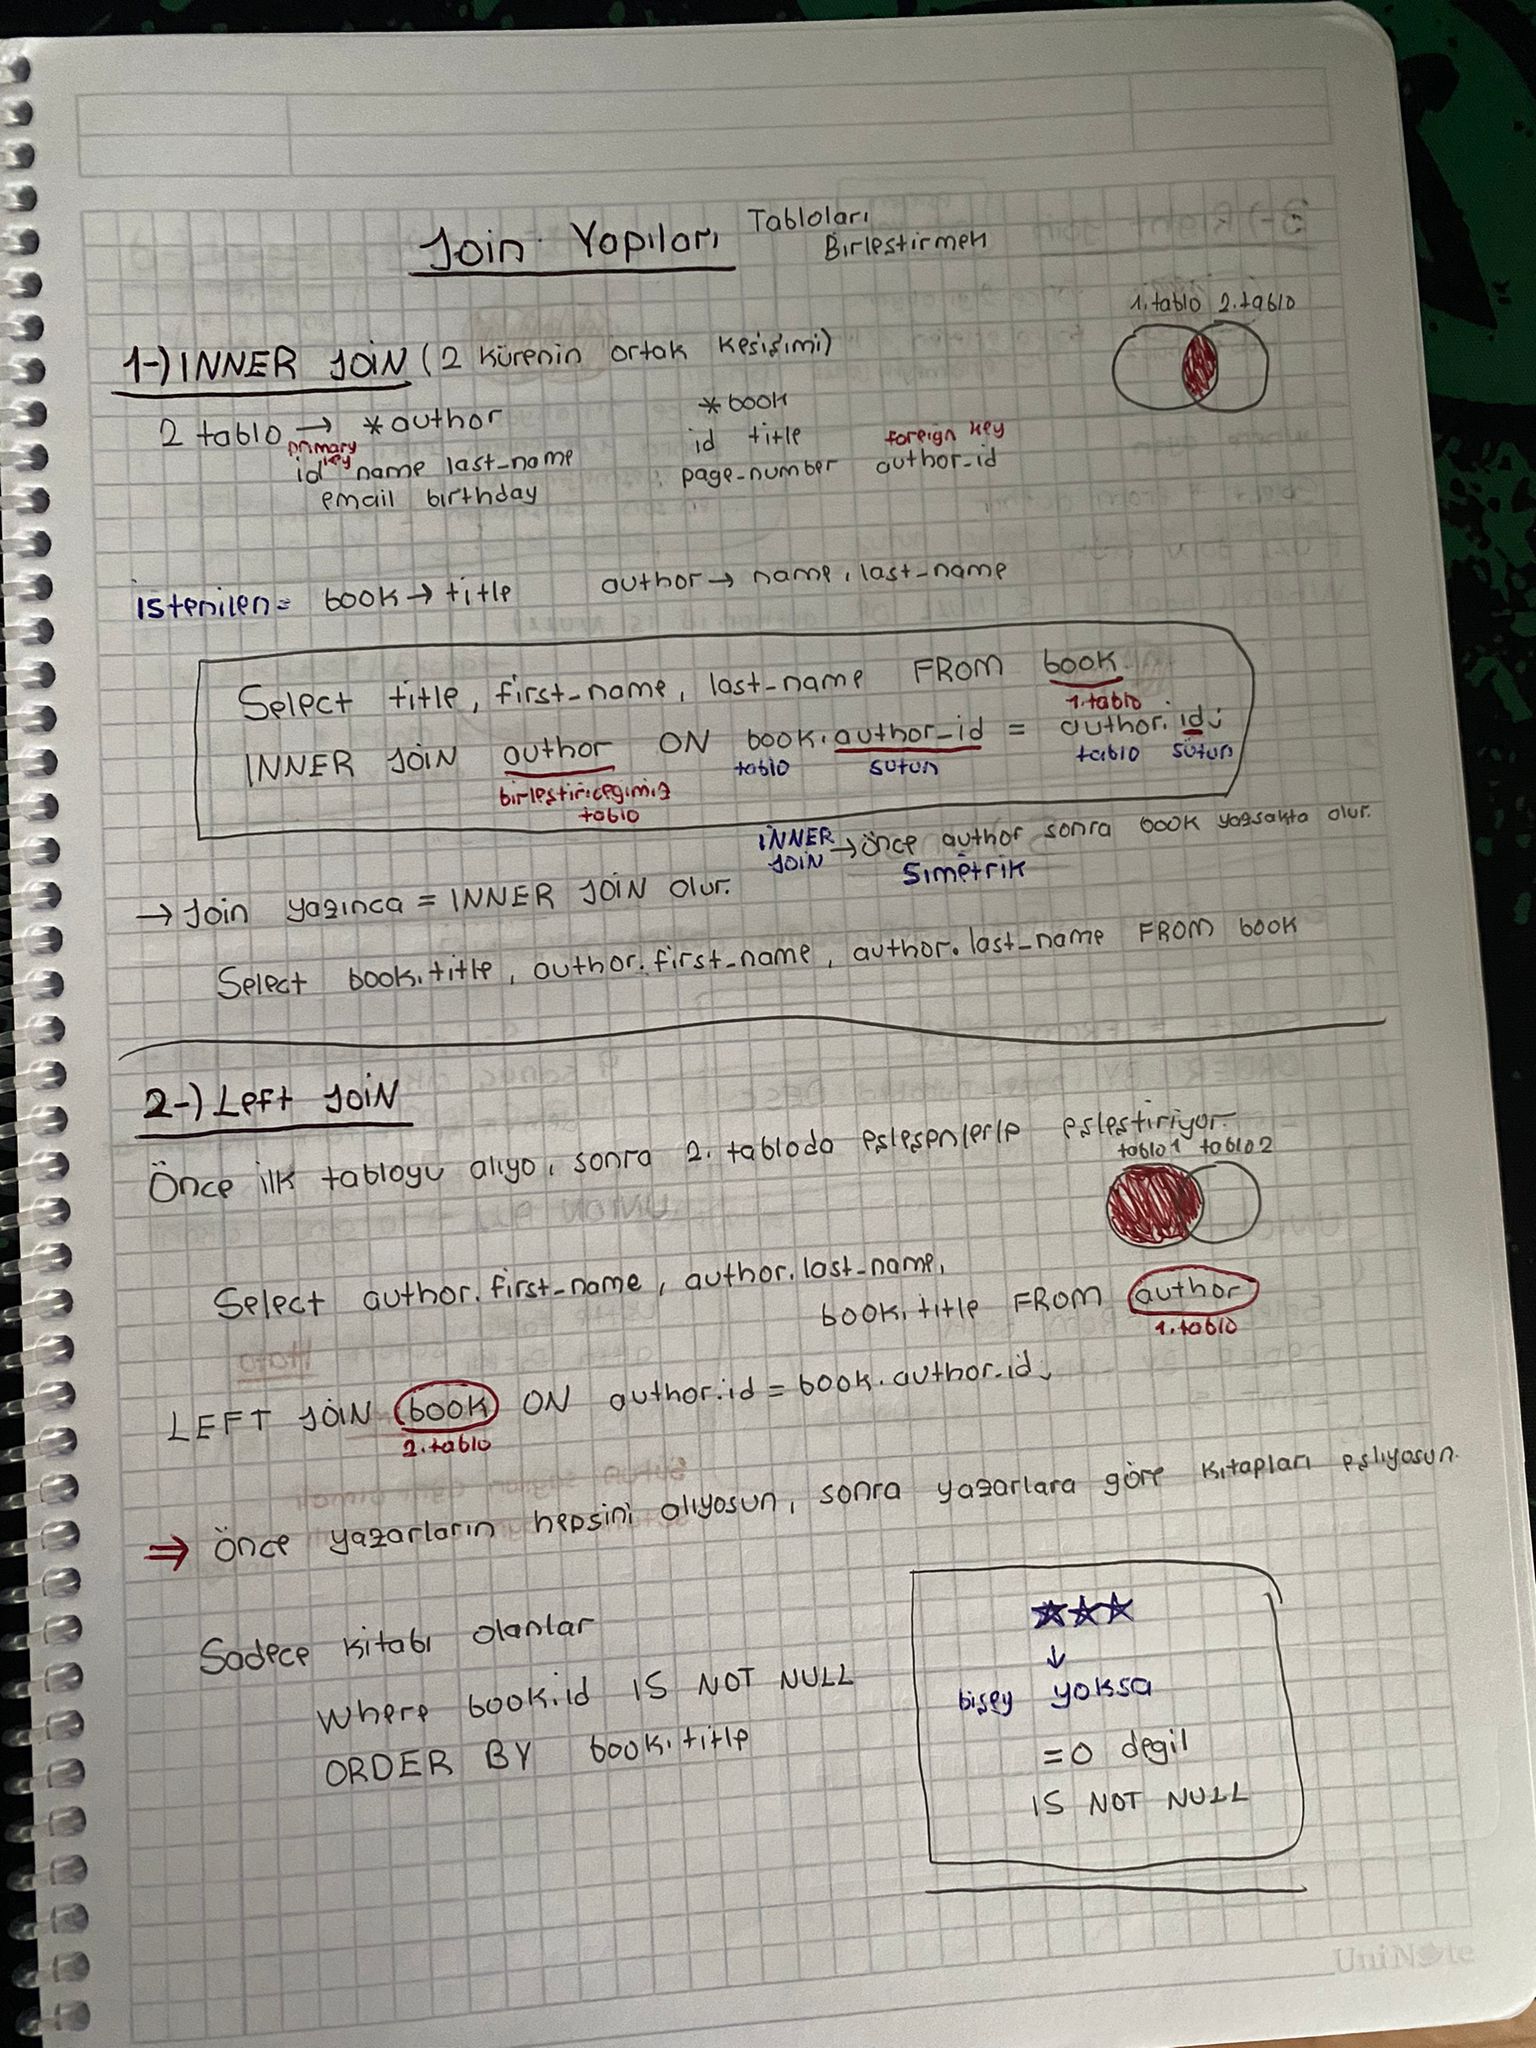 Join Yapıları Tabloları
Birleştirmek
1.tablo 2.tablo
1-) INNER JOİN (2 kürenin ortak kesişimi)
2 tablo → *author
primary key
id name last_name
email birthday
*book
id title
foreign key
page_number author_id
istenilen = book → title author → name, last_name
Select title, first_name, last_name FROM book
1.tablo
INNER JOİN author ON book.author_id = author.id;
birleştiricegimiz tablo
tablo sütun tablo sütun
INNER JOİN → önce author sonra book yazsakta olur.
Simetrik
→ Join yazınca = INNER JOİN olur.
Select book.title, author.first_name, author.last_name FROM book
2-) Left JOİN
Önce ilk tabloyu alıyo, sonra 2. tabloda eşleşenlerle eşleştiriyor.
tablo 1 tablo 2
Select author.first_name, author.last_name,
book.title FROM author
1.tablo
LEFT JOİN book ON author.id = book.author_id;
2.tablo
⇒ Önce yazarların hepsini alıyosun, sonra yazarlara göre kitapları eşliyosun.
Sadece kitabı olanlar
Where book.id IS NOT NULL
ORDER BY book.title
★★★
↓
bişey yoksa
=0 degil
IS NOT NULL
UniNote